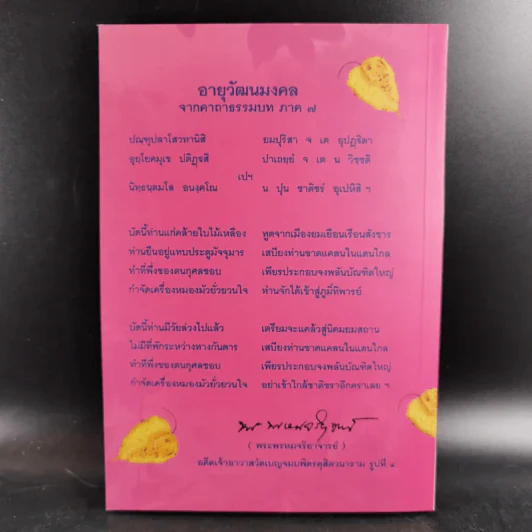 อายุวัฒนมงคล
จากคาถาธรรมบท ภาค ๗
ปณฺฑุปลาโสวทานิสิ ยมปุริสา จ เต อุปฏฺฐิตา
อุยฺโยคมุเข ปติฏฺฐสี ปาเถยฺยํ จ เต น วิชฺชติ
เปฯ
นิทฺธนฺตมโล อนงฺคโณ น ปุน ชาติชรํ อุเปหิสิ ฯ
บัดนี้ท่านแก่คล้ายใบไม้เหลือง ทูตจากเมืองยมเยือนเรือนสังขาร
ท่านยืนอยู่แทบประตูมัจจุมาร เสบียงท่านขาดแคลนในแดนไกล
ทำที่พึ่งของตนกุศลชอบ เพียรประกอบจงพลันบัณฑิตใหญ่
กำจัดเครื่องหมองมัวยั่วยวนใจ ท่านจักได้เข้าสู่ภูมิทิพารย์
บัดนี้ท่านมีวัยล่วงไปแล้ว เตรียมจะแคล้วสู่นิคมยมสถาน
ไม่มีที่พักระหว่างทางกันดาร เสบียงท่านขาดแคลนในแดนไกล
ทำที่พึ่งของตนกุศลชอบ เพียรประกอบจงพลันบัณฑิตใหญ่
กำจัดเครื่องหมองมัวยั่วยวนใจ อย่าเข้าใกล้ชาติชราอีกคราเลย ฯ
( พระพรหมจริยาจารย์ )
อดีตเจ้าอาวาสวัดเบญจมบพิตรดุสิตวนาราม รูปที่ ๔